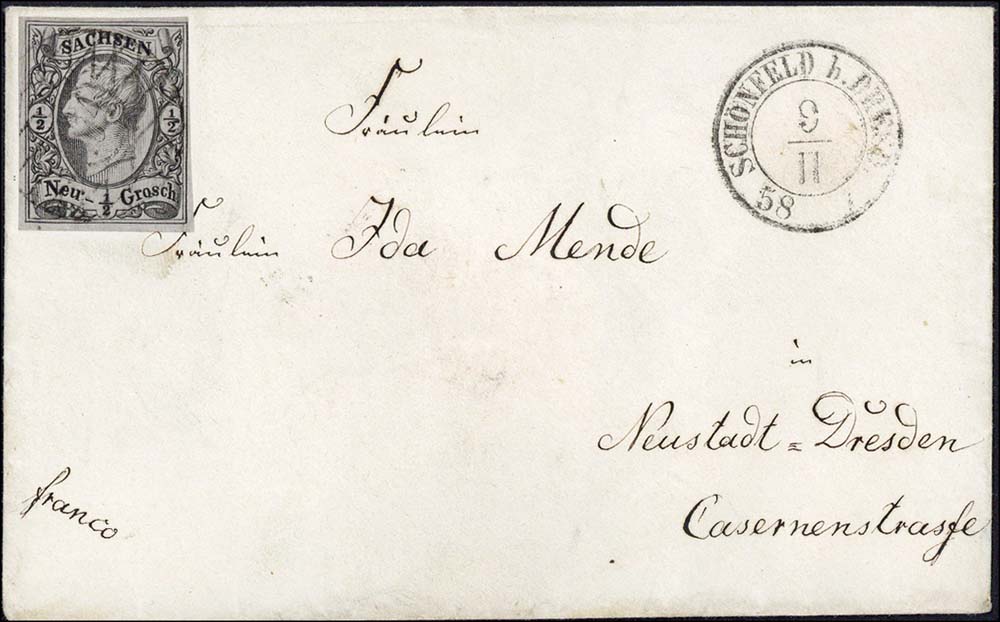 SACHSEN
1/2 1/2
Neu-1/2 Grosch
SCHÖNFELD b.
9
11
58
Fräulein
Fräulein Ida Mende
in
Neustadt = Dresden
Casernenstraſse
franco